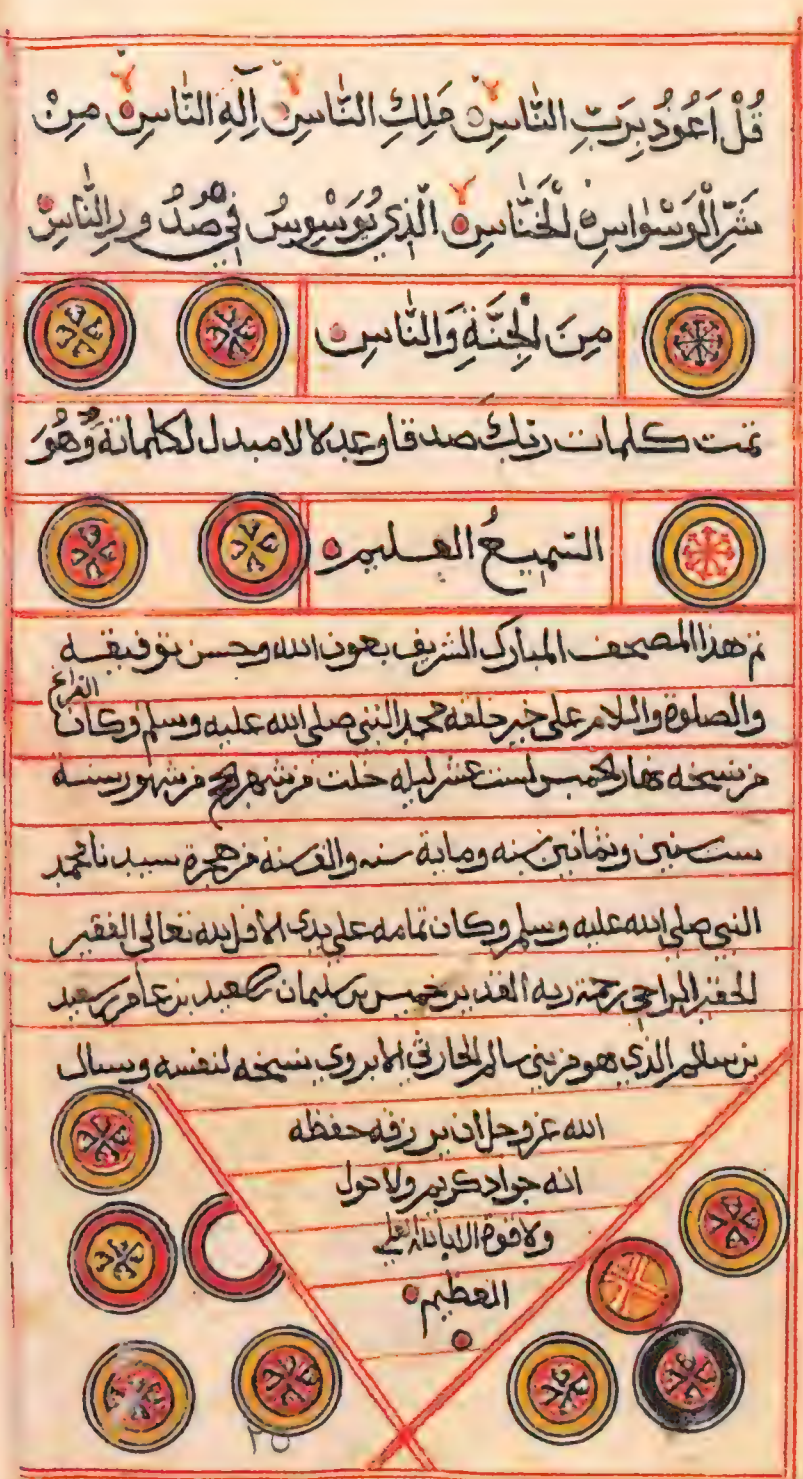 قُلْ اَعُوذُ بِرَبِّ النَّاسِ مَلِكِ النَّاسِ اِلٰهِ النَّاسِ مِنْ
شَرِّ الْوَسْوَاسِ الْخَنَّاسِ الَّذِي يُوَسْوِسُ فِي صُدُورِ النَّاسِ
مِنَ الْجِنَّةِ وَالنَّاسِ
تمت كلمات ربك صدقا وعدلا لا مبدل لكلماته وَهُوَ
السَّمِيعُ العليم
تم هذا المصحف المبارك الشريف بعون الله وحسن توفيقه
والصلوة والسلام على خير خلقه محمد النبي صلى الله عليه وسلم وكان الفراغ
من نسخه نهار الخميس لست عشر ليله خلت من شهر الحج من شهور سنة
ست سنين وثمانين سنه وماية سنه والف سنه من هجرة سيدنا محمد
النبي صلى الله عليه وسلم وكان تمامه على يدي الاقل لله تعالى الفقير
الحقير الراجي رحمة ربه القدير خميس بن سليمان بن سعيد بن عامر بن سعيد
بن سالم الذي هو من بني سالم الحارثي الابروي نسخه لنفسه ويسال
الله عز وجل ان يرزقه حفظه
انه جواد كريم ولا حول
ولا قوة الا بالله العلي
العظيم
٢٥